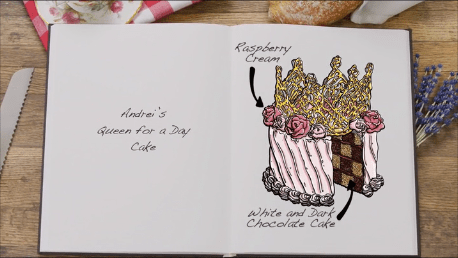 Andrei's
Queen for a Day
Cake
Raspberry
Cream
White and Dark
Chocolate Cake